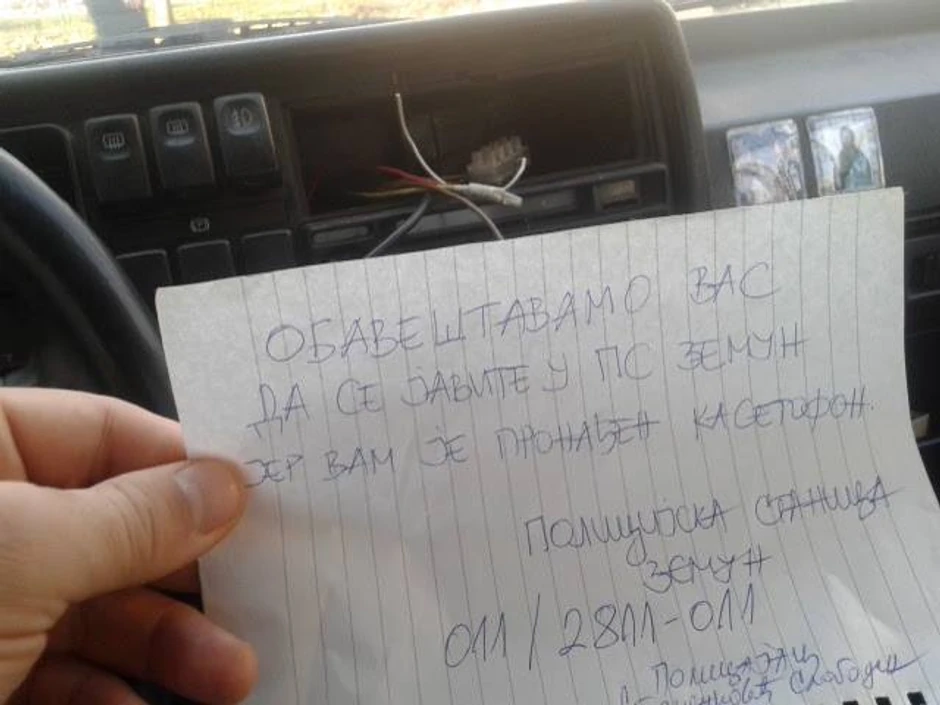 ОБАВЕШТАВАМО ВАС
ДА СЕ ЈАВИТЕ У ПС ЗЕМУН
ЈЕР ВАМ ЈЕ ПРОНАЂЕН КАСЕТОФОН.
ПОЛИЦИЈСКА СТАНИЦА
ЗЕМУН
011/2811-011
ПОЛИЦАЈАЦ